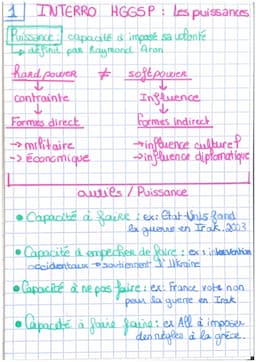 1 INTERRO HGGSP : Les puissances
Puissance : capacité à imposé sa volonté
→ définit par Raymond Aron
hard power ≠ soft power
contrainte Influence
Formes direct Formes Indirect
→ militaire →influence culturel
→ économique →influence diplomatique
outils / Puissance
• Capacité à faire : ex: État-Unis fond
la guerre en Irak. 2003
• Capacité à empecher de faire : ex : intervention
occidentaux → soutiennent l'Ukraine
• Capacité à ne pas faire : ex: France vote non
pour la guerre en Irak
• Capacité à faire faire : ex All à imposer
des règles à la grèce.